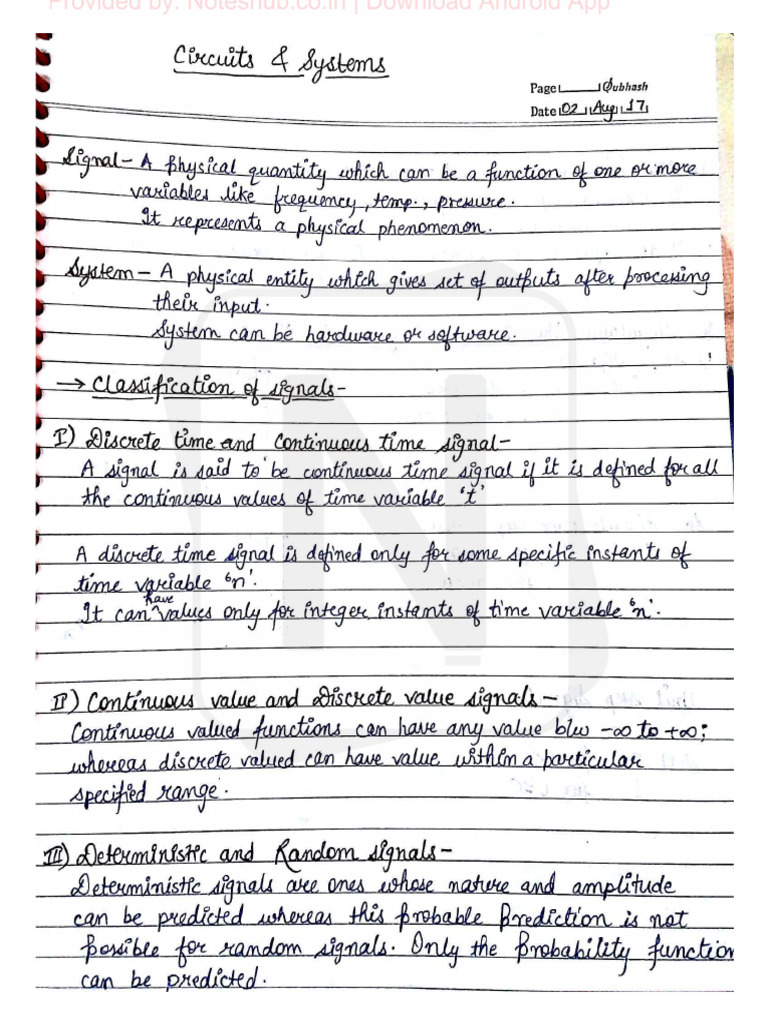 Provided by: Noteshub.co.in | Download Android App
Circuits & Systems
Page
Date 02 Aug 17
Signal - A physical quantity which can be a function of one or more
variables like frequency, temp., pressure.
It represents a physical phenomenon.
System - A physical entity which gives set of outputs after processing
their input.
System can be hardware or software.
→ Classification of signals-
I) Discrete time and continuous time signal-
A signal is said to be continuous time signal if it is defined for all
the continuous values of time variable 't'
A discrete time signal is defined only for some specific instants of
time variable 'n'.
It can have values only for integer instants of time variable 'n'.
II) Continuous value and Discrete value signals-
Continuous valued functions can have any value b/w -∞ to +∞;
whereas discrete valued can have value within a particular
specified range.
III) Deterministic and Random signals-
Deterministic signals are ones whose nature and amplitude
can be predicted whereas this probable prediction is not
possible for random signals. Only the probability function
can be predicted.